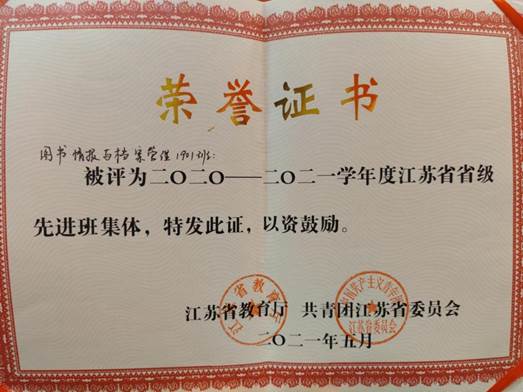 荣誉证书
图书情报与档案管理1901班:
被评为二〇二〇——二〇二一学年度江苏省省级
先进班集体，特发此证，以资鼓励。
江苏省教育厅 共青团江苏省委员会
二〇二一年五月
江苏省教育厅
中国共产主义青年团
江苏省委员会